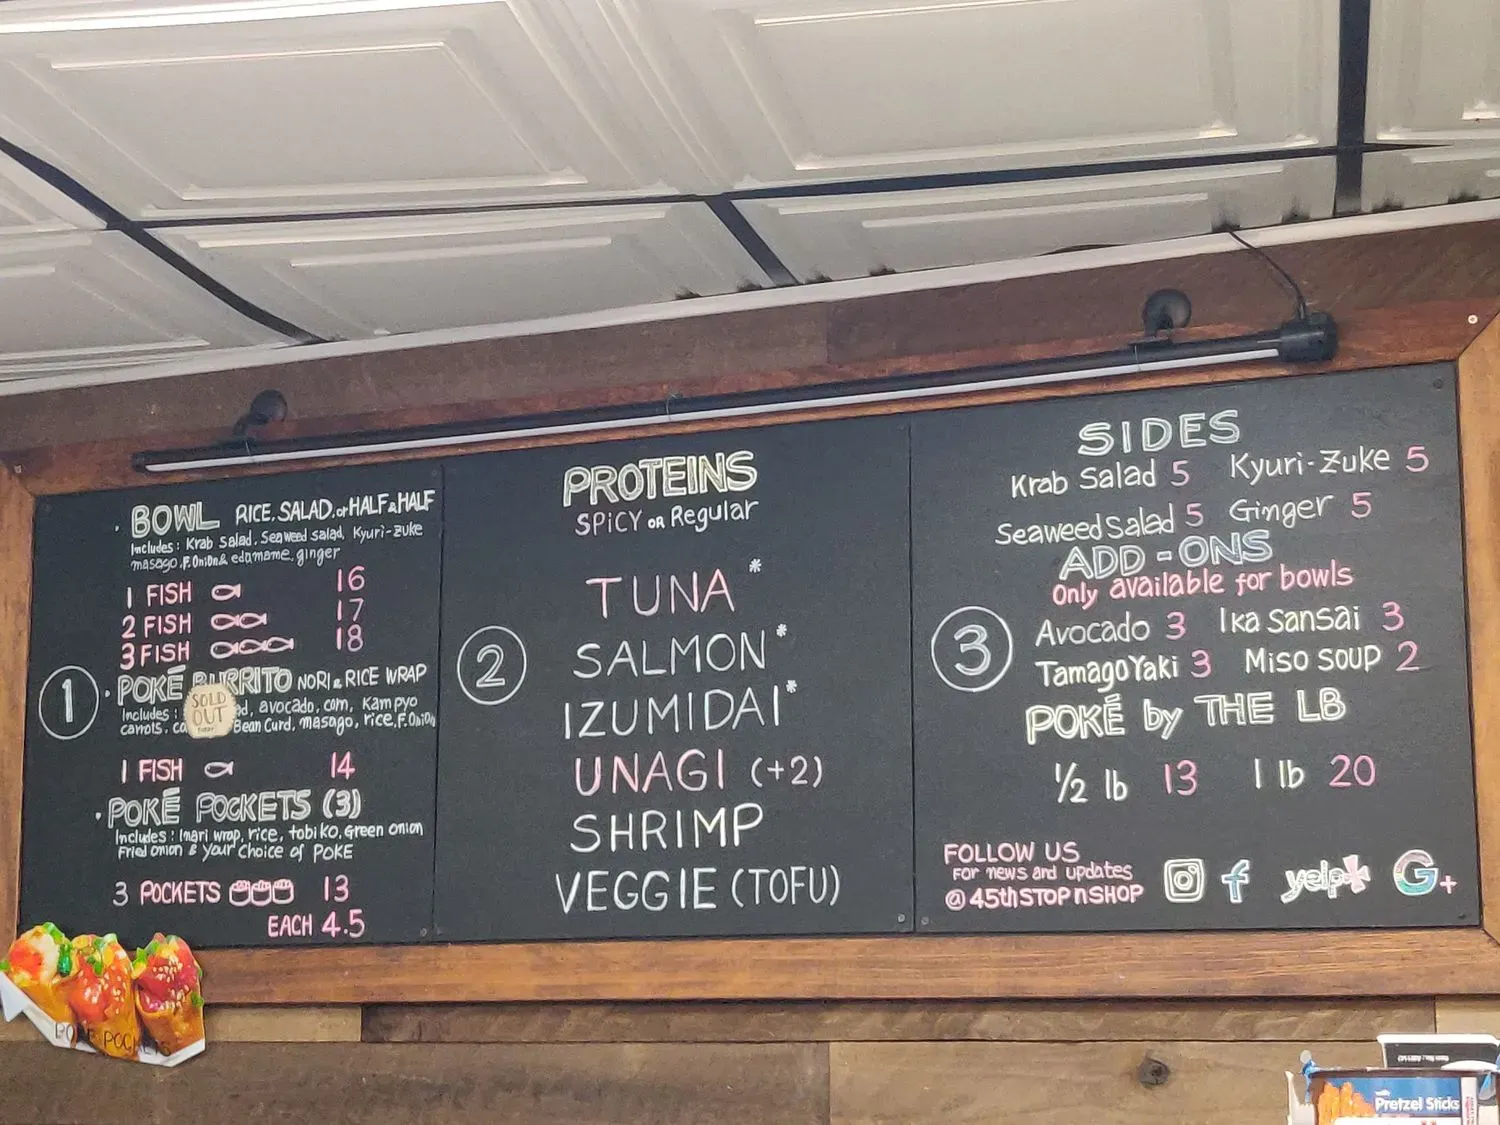 BOWL RICE, SALAD, or HALF & HALF
Includes: Krab Salad, Seaweed salad, Kyuri-zuke
masago, F.Onion & edamame, ginger
1 FISH 16
2 FISH 17
3 FISH 18
1
POKÉ BURRITO NORI & RICE WRAP
Includes: avocado, corn, Kampyo
carrots, Bean Curd, masago, rice, F.Onion
SOLD
OUT
1 FISH 14
POKÉ POCKETS (3)
Includes: Inari wrap, rice, tobiko, Green onion
Fried onion & your choice of POKE
3 POCKETS 13
EACH 4.5
POKE POCKETS
PROTEINS
SPICY OR Regular
2
TUNA*
SALMON*
IZUMIDAI*
UNAGI (+2)
SHRIMP
VEGGIE (TOFU)
SIDES
Krab Salad 5 Kyuri-Zuke 5
Seaweed Salad 5 Ginger 5
ADD-ONS
Only available for bowls
3
Avocado 3 Ika Sansai 3
Tamago Yaki 3 Miso soup 2
POKÉ by THE LB
1/2 lb 13 1 lb 20
FOLLOW US
For news and updates
@45thSTOPnSHOP
f yelp G+
Pretzel Sticks